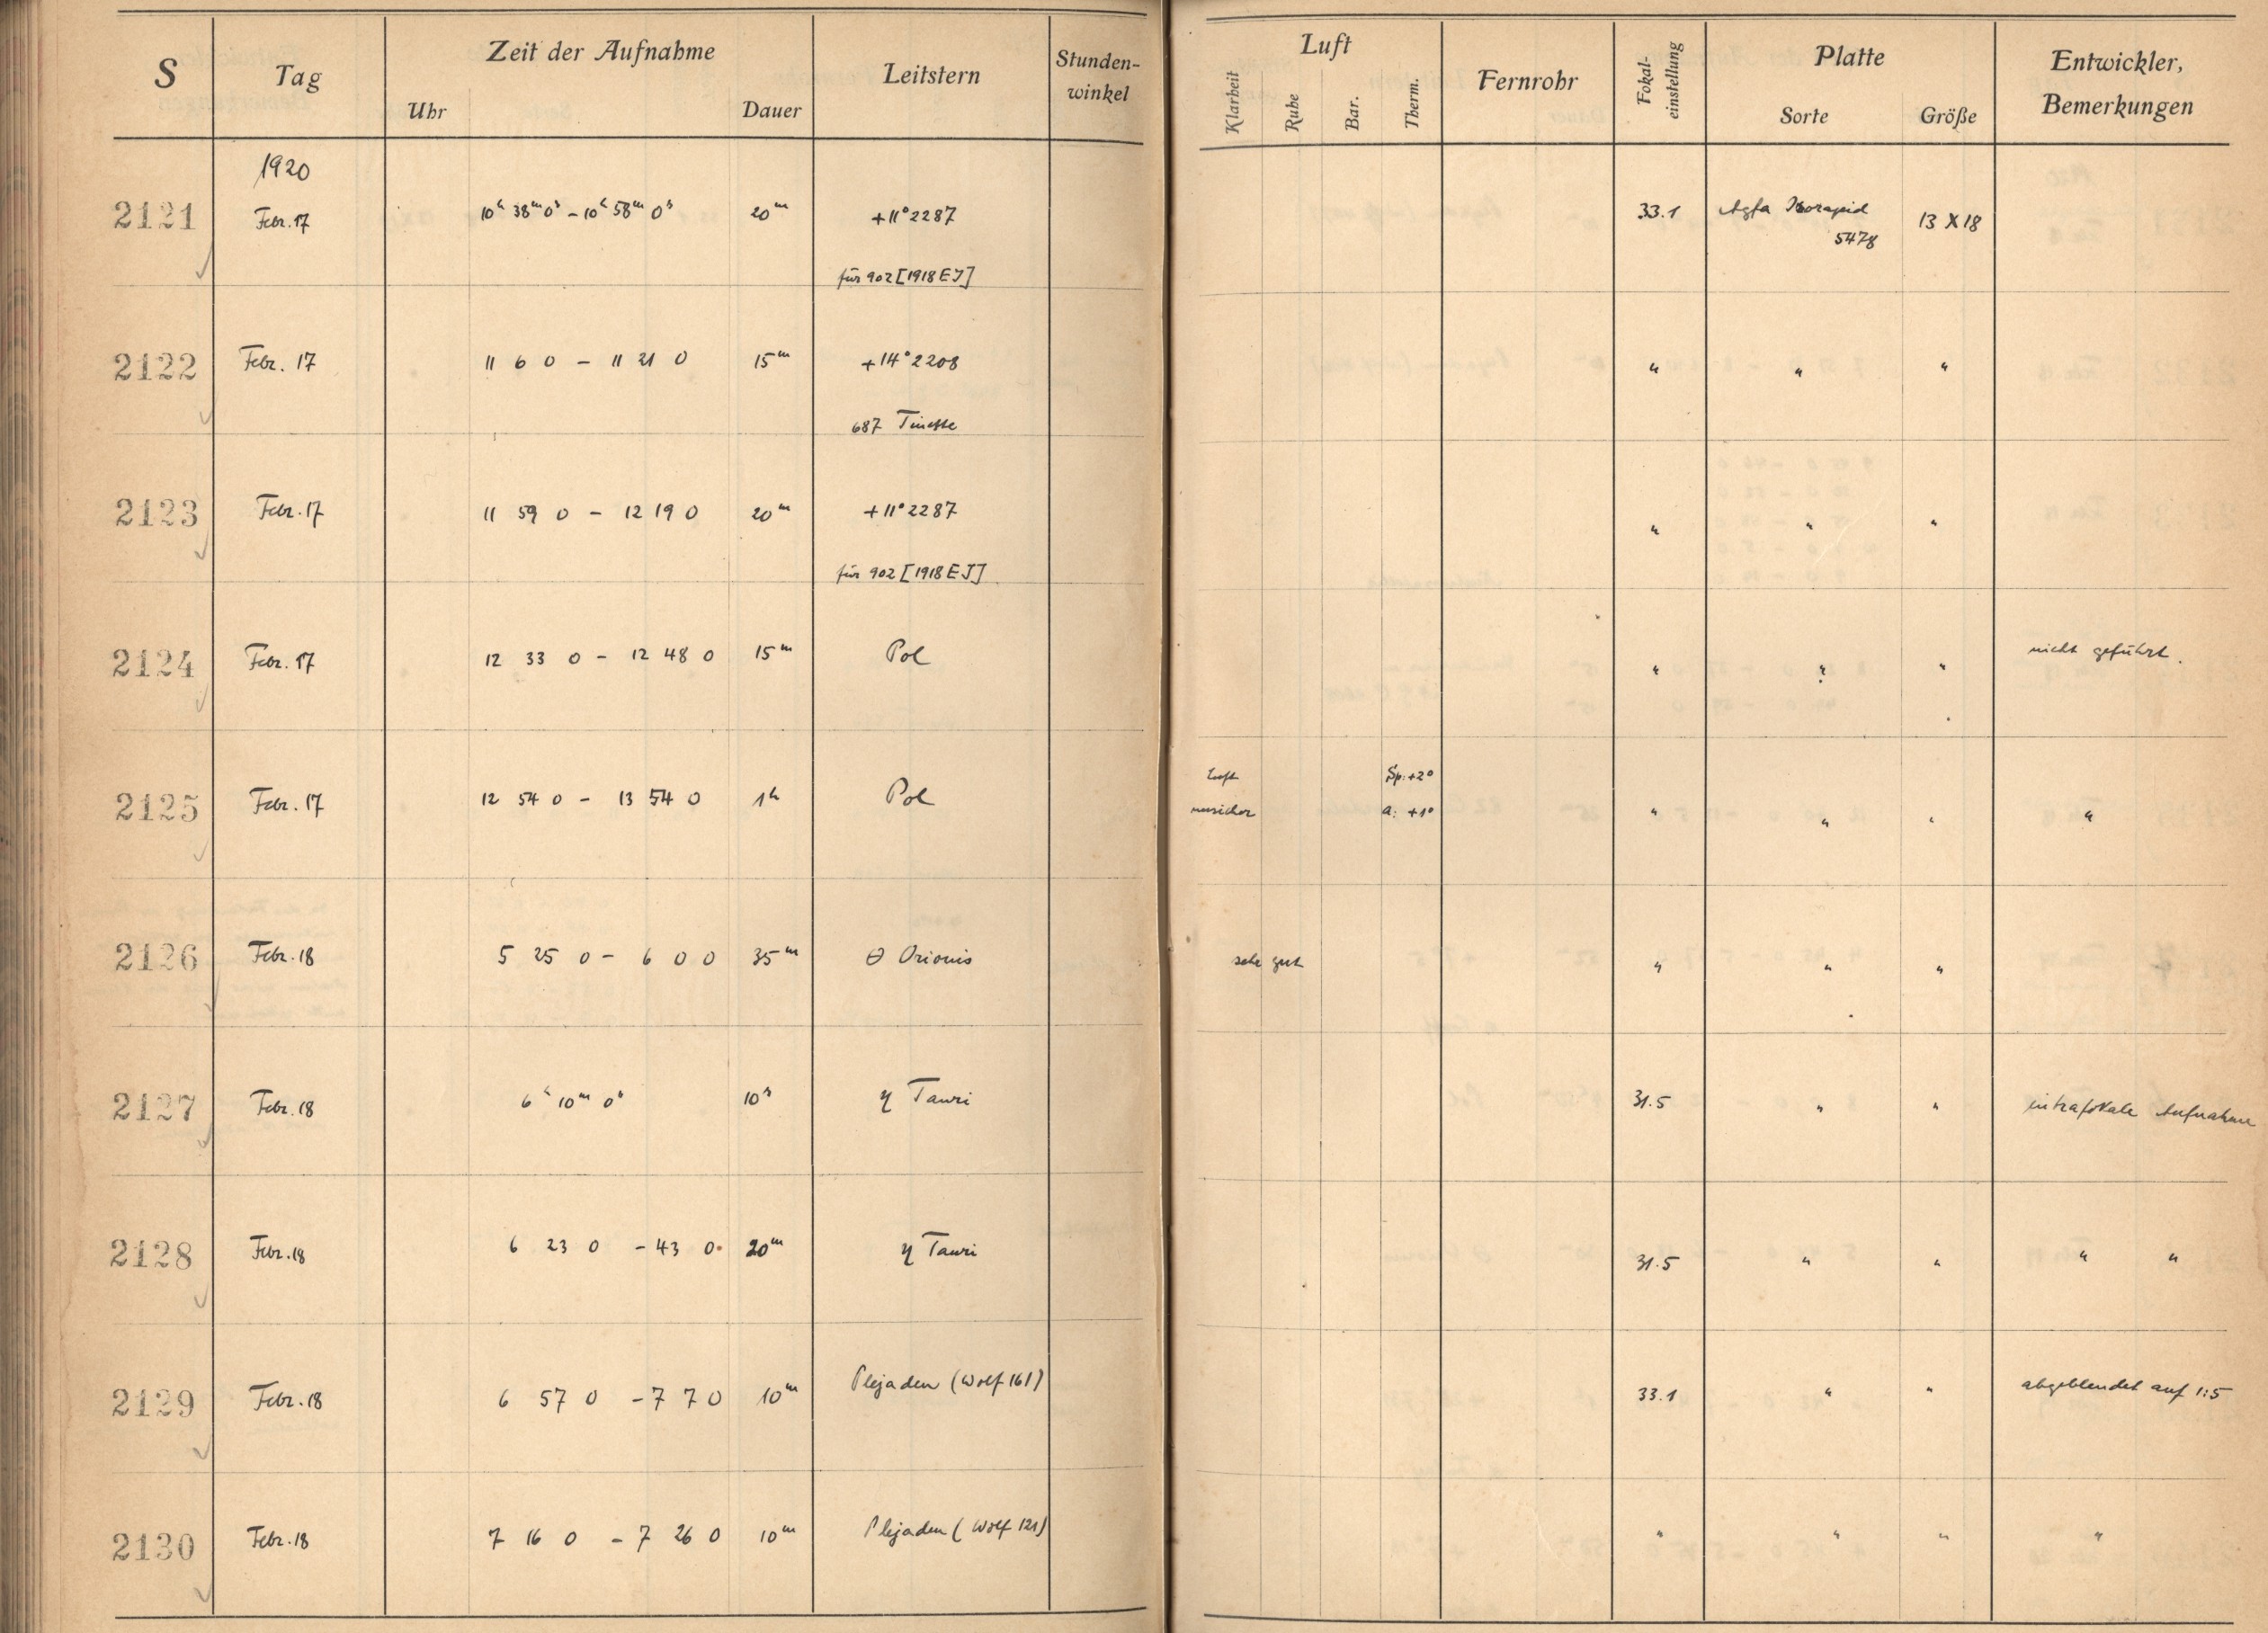 S Tag Zeit der Aufnahme Uhr Dauer Leitstern Stunden-winkel Luft Klarheit Ruhe Bar. Therm. Fernrohr Fokal-einstellung Platte Sorte Größe Entwickler, Bemerkungen
1920
2121 Febr. 17 10h 38m 0s – 10h 58m 0s 20m +11°2287 33.1 Agfa Isorapid 13 X 18
5478
für 902 [1918 EJ]
2122 Febr. 17 11 6 0 – 11 21 0 15m +14°2208 " " "
687 Tinette
2123 Febr. 17 11 59 0 – 12 19 0 20m +11°2287 " " "
für 902 [1918 EJ]
2124 Febr. 17 12 33 0 – 12 48 0 15m Pol " " " nicht geführt.
Luft Sp: +2°
2125 Febr. 17 12 54 0 – 13 54 0 1h Pol unsicher a: +1° " " " "
2126 Febr. 18 5 25 0 – 6 0 0 35m θ Orionis sehr gut " " "
2127 Febr. 18 6h 10m 0s 10s η Tauri 31.5 " " intrafokale Aufnahme
2128 Febr. 18 6 23 0 – 43 0. 20m η Tauri 31.5 " " " "
2129 Febr. 18 6 57 0 – 7 7 0 10m Plejaden (Wolf 161) 33.1 " " abgeblendet auf 1:5
2130 Febr. 18 7 16 0 – 7 26 0 10m Plejaden (Wolf 121) " " " "